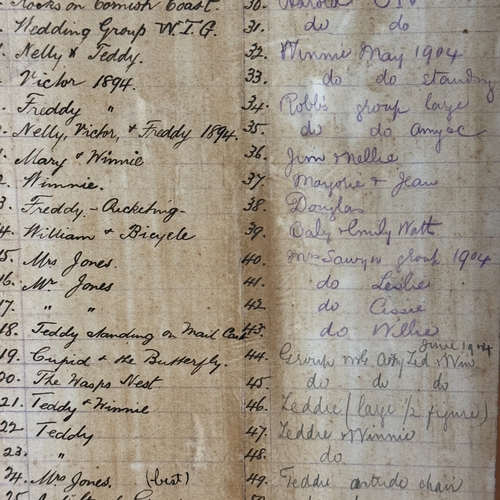 Rocks on Cornish Coast.
Wedding Group W.T.G.
Nelly & Teddy.
Victor 1894.
Freddy "
Nelly, Victor, & Freddy 1894.
Mary & Winnie
Winnie.
3. Freddy - Cricketing-
4. William & Bicycle
5. Mrs Jones.
16. Mr Jones
17. " "
18. Teddy standing on Mail Cart
19. Cupid & the Butterfly.
20. The Wasps Nest
21. Teddy & Winnie
22 Teddy
23. "
24. Mrs Jones. (best)
30. Harold
31. do do
32. Winnie May 1904
33. do do standing
34. Robbs group large
35. do do
36. Jim & Nellie
37. Marjorie & Jean
38. Douglas
39. & Emily Watt
40. Mrs Sawyer group 1904
41. do Leslie
42. do Cissie
43. do Willie
June 1904
44. Group & Win
45. do do do
46. Teddie (large ½ figure)
47. Teddie & Winnie
48. do
49. Teddie chair